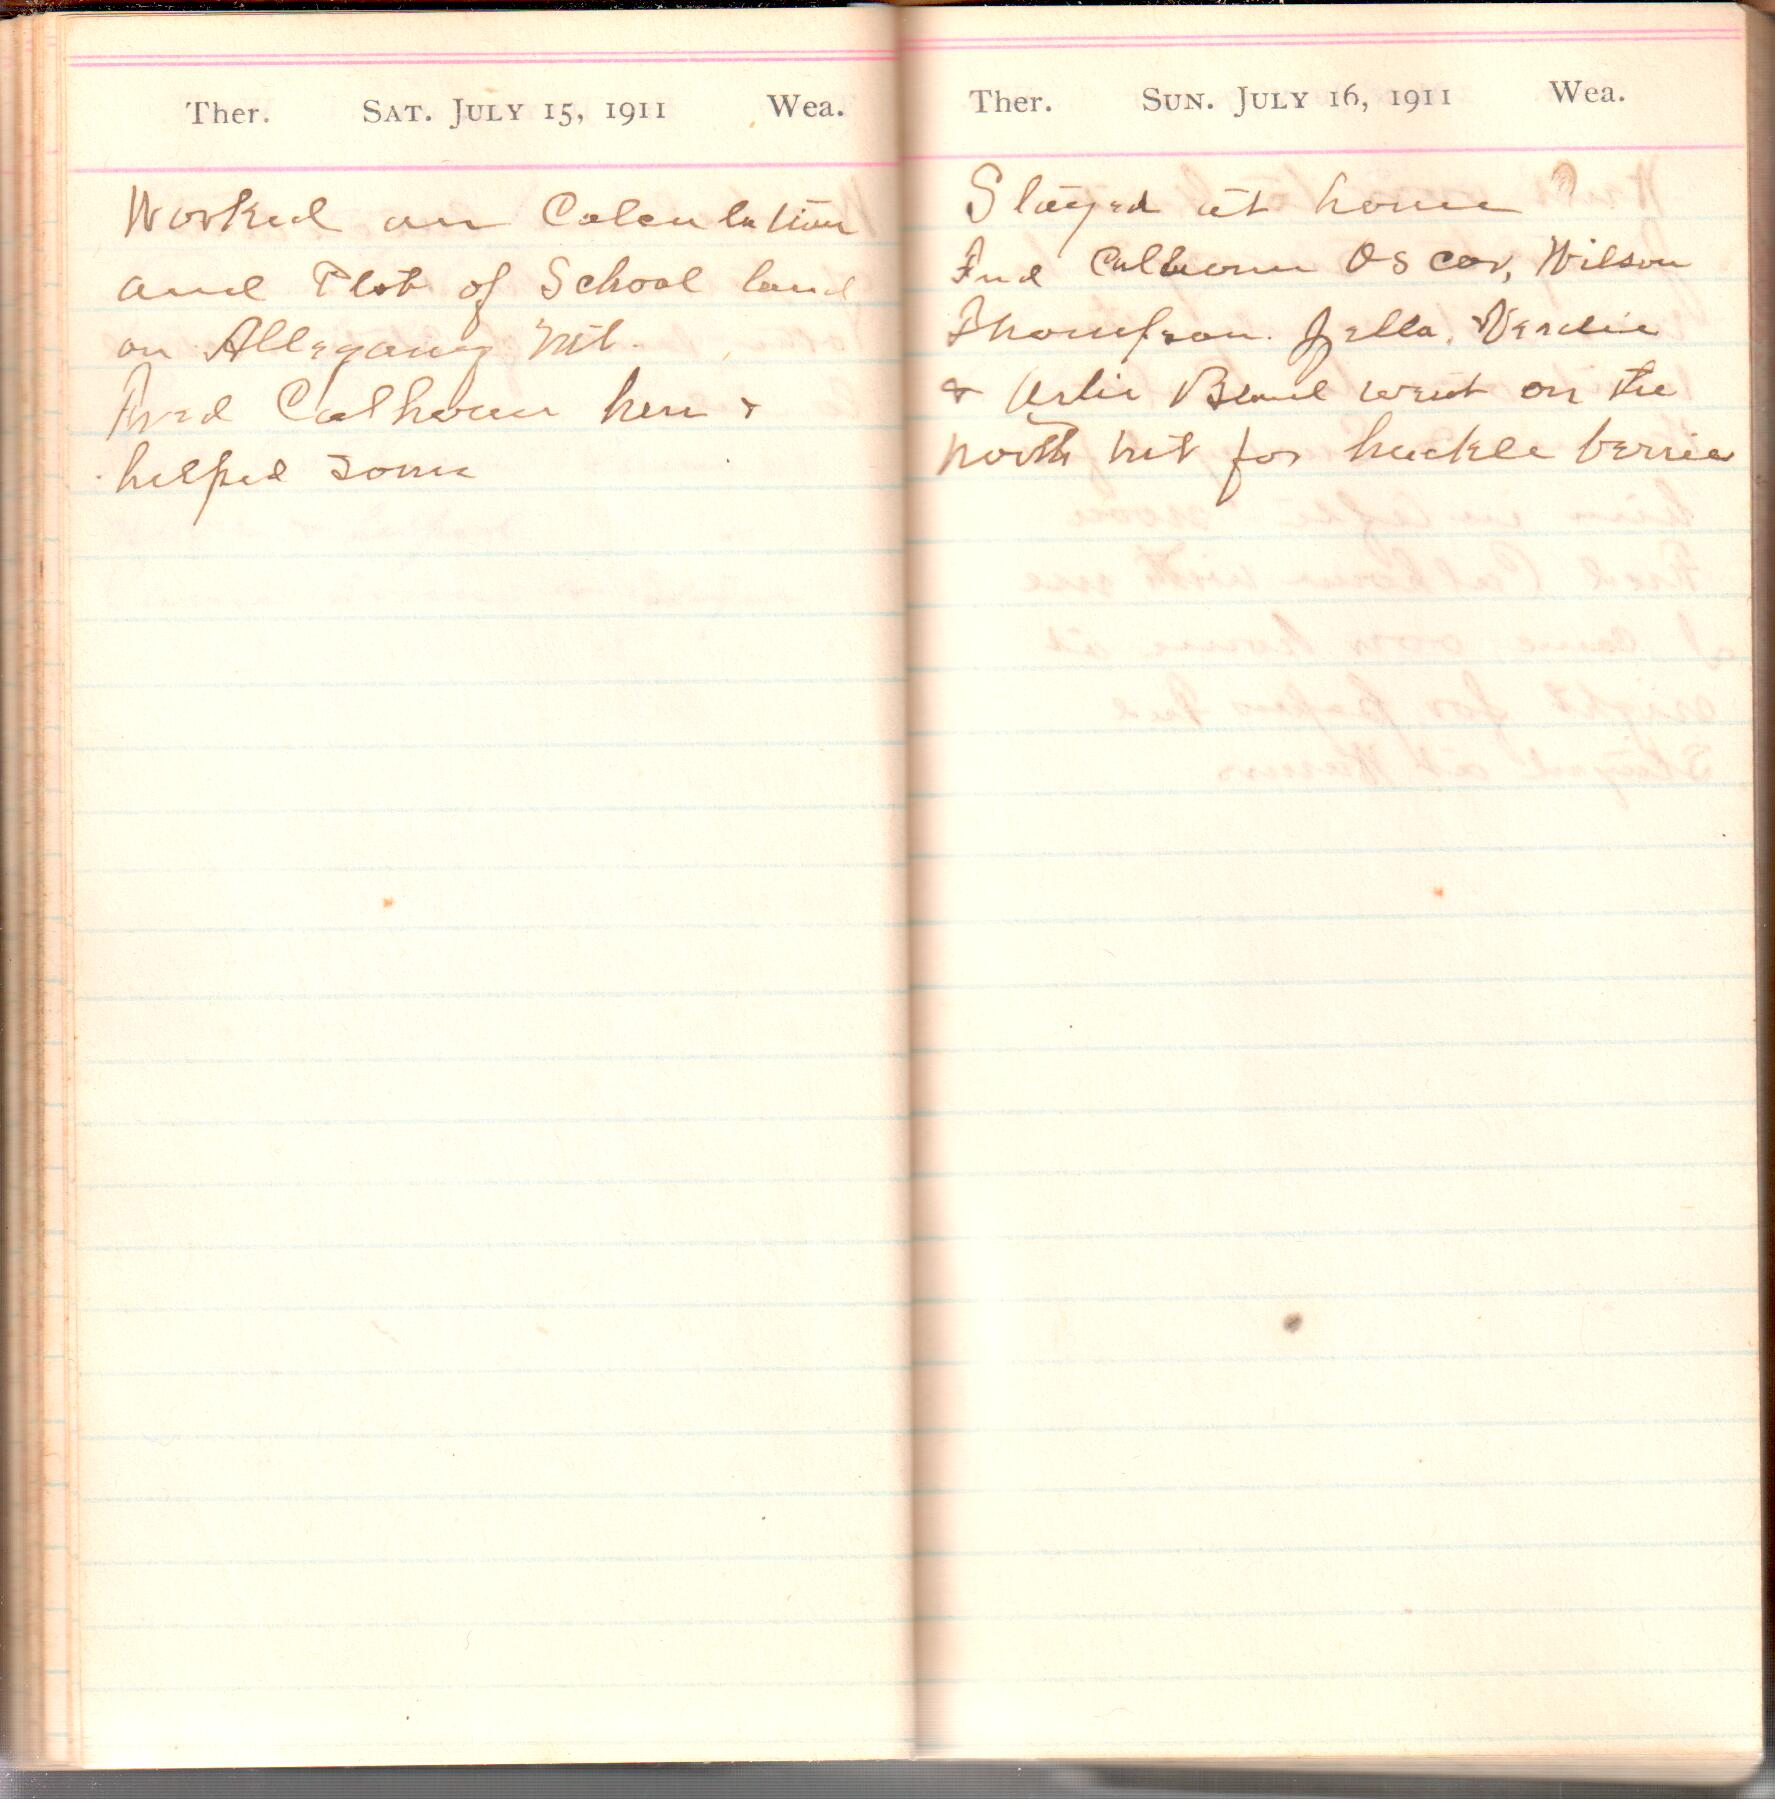 Ther. SAT. JULY 15, 1911 Wea.
Worked on Calculation
and Plot of School land
on Allegany Mt.
Fred Calhoun here &
helped some
Ther. SUN. JULY 16, 1911 Wea.
Stayed at home
Fred Calhoun Oscar, Wilson
Thompson. Zella, Verdie
& Arlie Beard went on the
north Mt for huckle berries